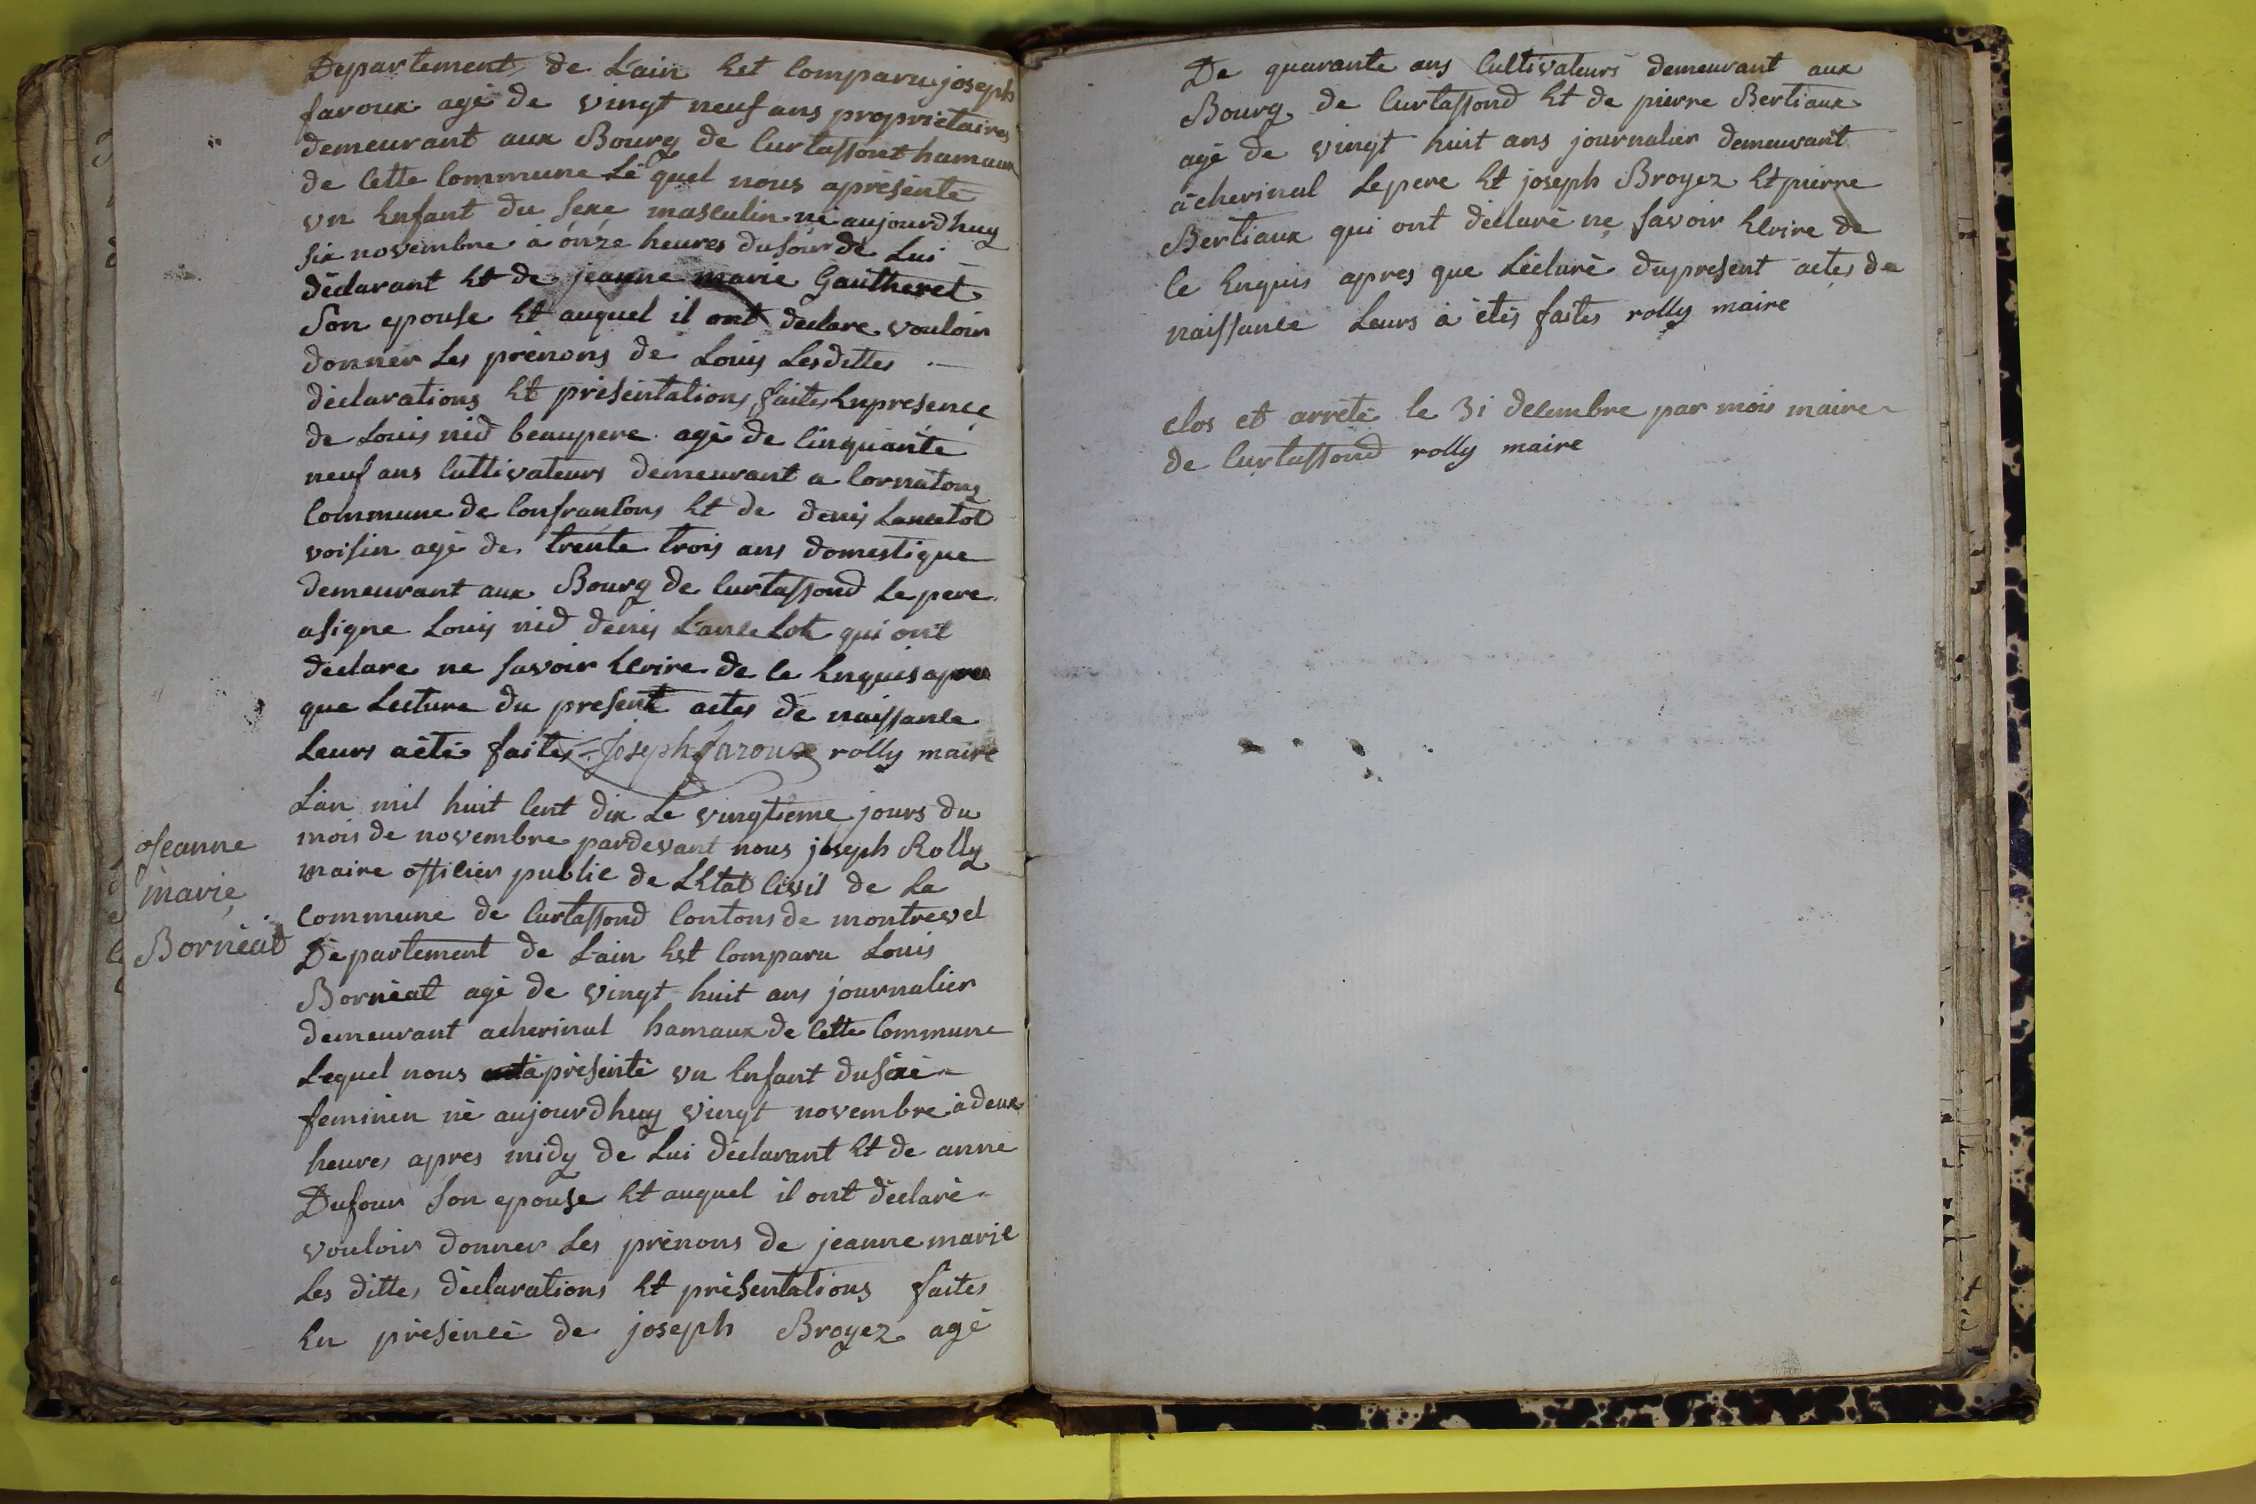 Departement de L'ain Est Comparu joseph
faroux agé de vingt neuf ans proprietaires
demeurant aux Bourg de Curtassont hamaux
de Cette Commune Le quel nous aprésenté
un Enfant du sexe masculin né aujourdhuy
six novembre à onze heures du soir de Lui
déclarant Et de jeanne marie Gautheret
Son epouse Et auquel il ont declare vouloir
donner Les prénons de Louis Lesdittes
déclarations Et présentations faites Enpresence
de Louis nid beaupere agé de Cinquante
neuf ans Cultivateurs demeurant a Cornatons
Commune de Confransons Et de denis Lancelot
voisin agé de trente trois ans domestique
demeurant aux Bourg de Curtassond Le pere
asigne Louis nid denis Lancelot qui ont
déclare ne savoir Ecrire de ce Enquis apres
que Lecture du present actes de naissance
Leurs aété faites Joseph faroux rolly maire
L'an mil huit Cent dix Le vingtieme jours du
mois de novembre pardevant nous joseph Rolly
maire officier public de LEtat Civil de La
Commune de Curtassond Contons de montrevel
Département de L'ain Est Comparu Louis
Bornéat agé de vingt huit ans journalier
demeurant acherinal hamaux de Cette Commune
Lequel nous aprésenté un Enfant du sexe
feminin né aujourdhuy vingt novembre à deux
heures apres midy de Lui déclarant Et de anne
Dufour Son epouse Et auquel il ont déclaré
vouloir donner Les prénons de jeanne marie
Les dittes déclarations Et présentations faites
En présence de joseph Broyez agé
Jeanne
marie
Bornéat
De quarante ans Cultivateurs demeurant aux
Bourg de Curtassond Et de pierre Bertiaux
agé de vingt huit ans journalier demeurant
à cherinal Lepere Et joseph Broyez Et pierre
Bertiaux qui ont déclaré ne savoir Ecrire de
ce Enquis apres que Lécturé dupresent actes de
naissance Leurs à étés faites rolly maire
clos et arrété le 31 décembre par mois maire
de Curtassond rolly maire